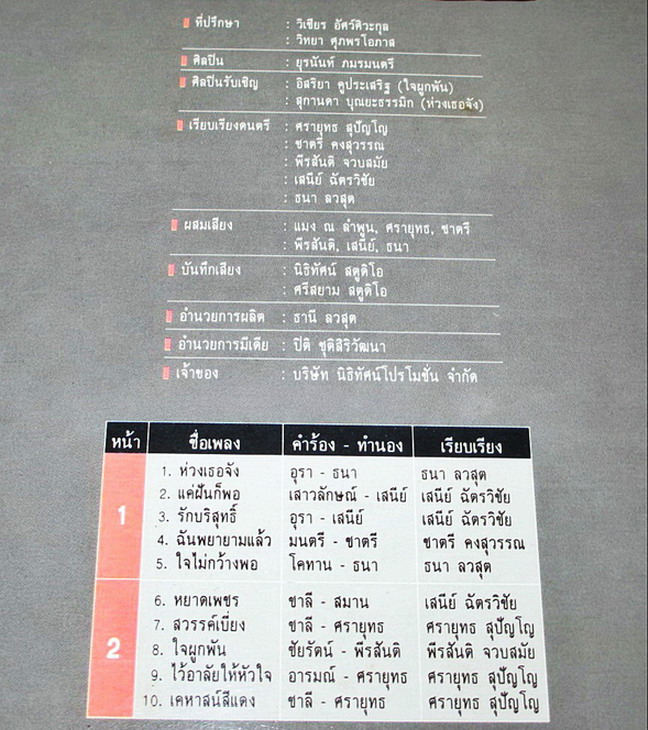 ที่ปรึกษา : วิเชียร อัศว์ศิวะกุล
: วิทยา ศุภพรโอภาส
ศิลปิน : ยุรนันท์ ภมรมนตรี
ศิลปินรับเชิญ : อิสริยา คูประเสริฐ (ใจผูกพัน)
: สุกานดา บุณยะธรรมิก (ห่วงเธอจัง)
เรียบเรียงดนตรี : ศรายุทธ สุปัญโญ
: ชาตรี คงสุวรรณ
: พีรสันติ จวบสมัย
: เสนีย์ ฉัตรวิชัย
: ธนา ลวสุต
ผสมเสียง : แมง ณ ลำพูน, ศรายุทธ, ชาตรี
: พีรสันติ, เสนีย์, ธนา
บันทึกเสียง : นิธิทัศน์ สตูดิโอ
: ศรีสยาม สตูดิโอ
อำนวยการผลิต : ธานี ลวสุต
อำนวยการมีเดีย : ปิติ ชุติสิริวัฒนา
เจ้าของ : บริษัท นิธิทัศน์โปรโมชั่น จำกัด
หน้า ชื่อเพลง คำร้อง - ทำนอง เรียบเรียง
1. ห่วงเธอจัง อุรา - ธนา ธนา ลวสุต
2. แค่ฝันก็พอ เสาวลักษณ์ - เสนีย์ เสนีย์ ฉัตรวิชัย
1 3. รักบริสุทธิ์ อุรา - เสนีย์ เสนีย์ ฉัตรวิชัย
4. ฉันพยายามแล้ว มนตรี - ชาตรี ชาตรี คงสุวรรณ
5. ใจไม่กว้างพอ โคทาน - ธนา ธนา ลวสุต
6. หยาดเพชร ชาลี - สมาน เสนีย์ ฉัตรวิชัย
7. สวรรค์เบี่ยง ชาลี - ศรายุทธ ศรายุทธ สุปัญโญ
2 8. ใจผูกพัน ชัยรัตน์ - พีรสันติ พีรสันติ จวบสมัย
9. ไว้อาลัยให้หัวใจ อารมณ์ - ศรายุทธ ศรายุทธ สุปัญโญ
10. เคหาสน์สีแดง ชาลี - ศรายุทธ ศรายุทธ สุปัญโญ